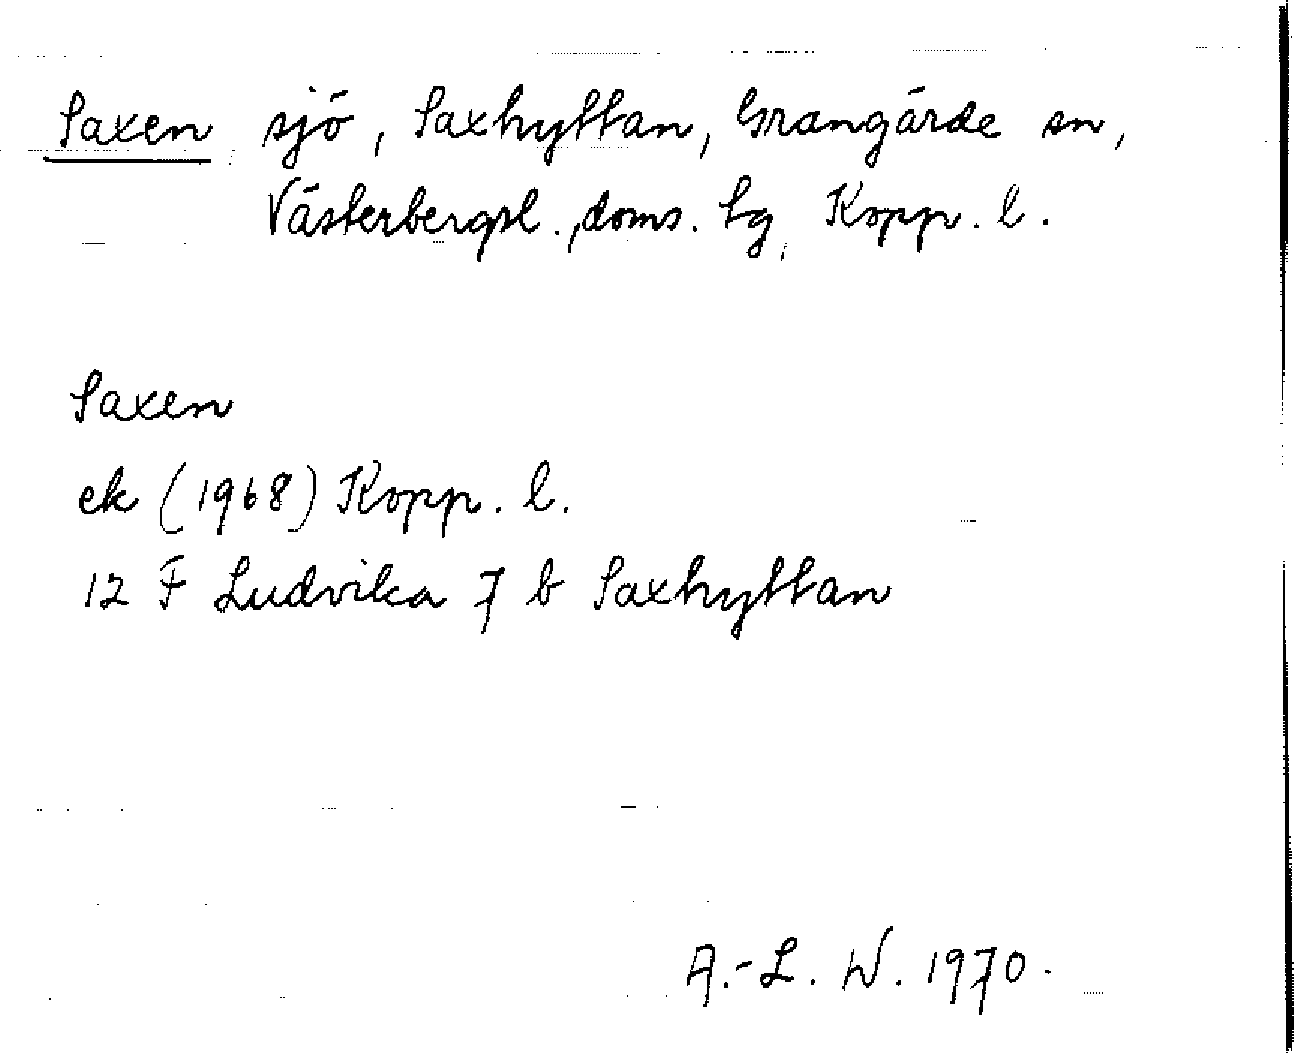 Saxen sjö, Saxhyttan, Grangärde sn,
Västerbergsl., doms. tg, Kopp. l.
Saxen
ek (1968) Kopp. l.
12 F Ludvika 7 b Saxhyttan
A.-L. W. 1970.